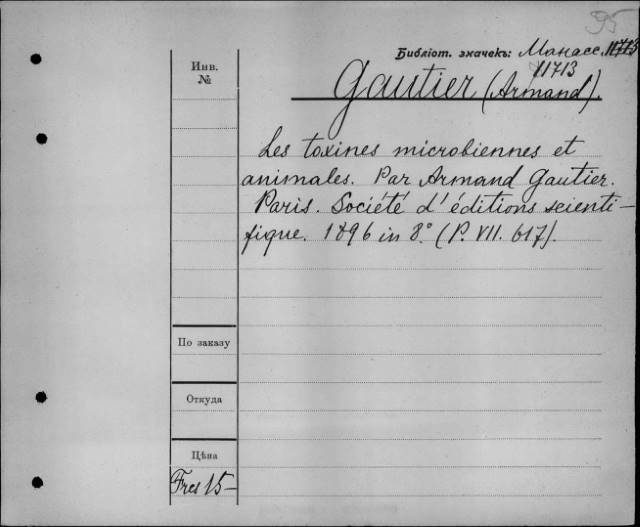 95
Библіот. значекъ: Манасе. 11713
11713
Инв.
№
Gautier (Armand).
Les toxines microbiennes et
animales. Par Armand Gautier.
Paris. Société d'éditions scienti-
fique. 1896 in 8° (P. VII. 617).
По заказу
Откуда
Цѣна
Frcs 15-